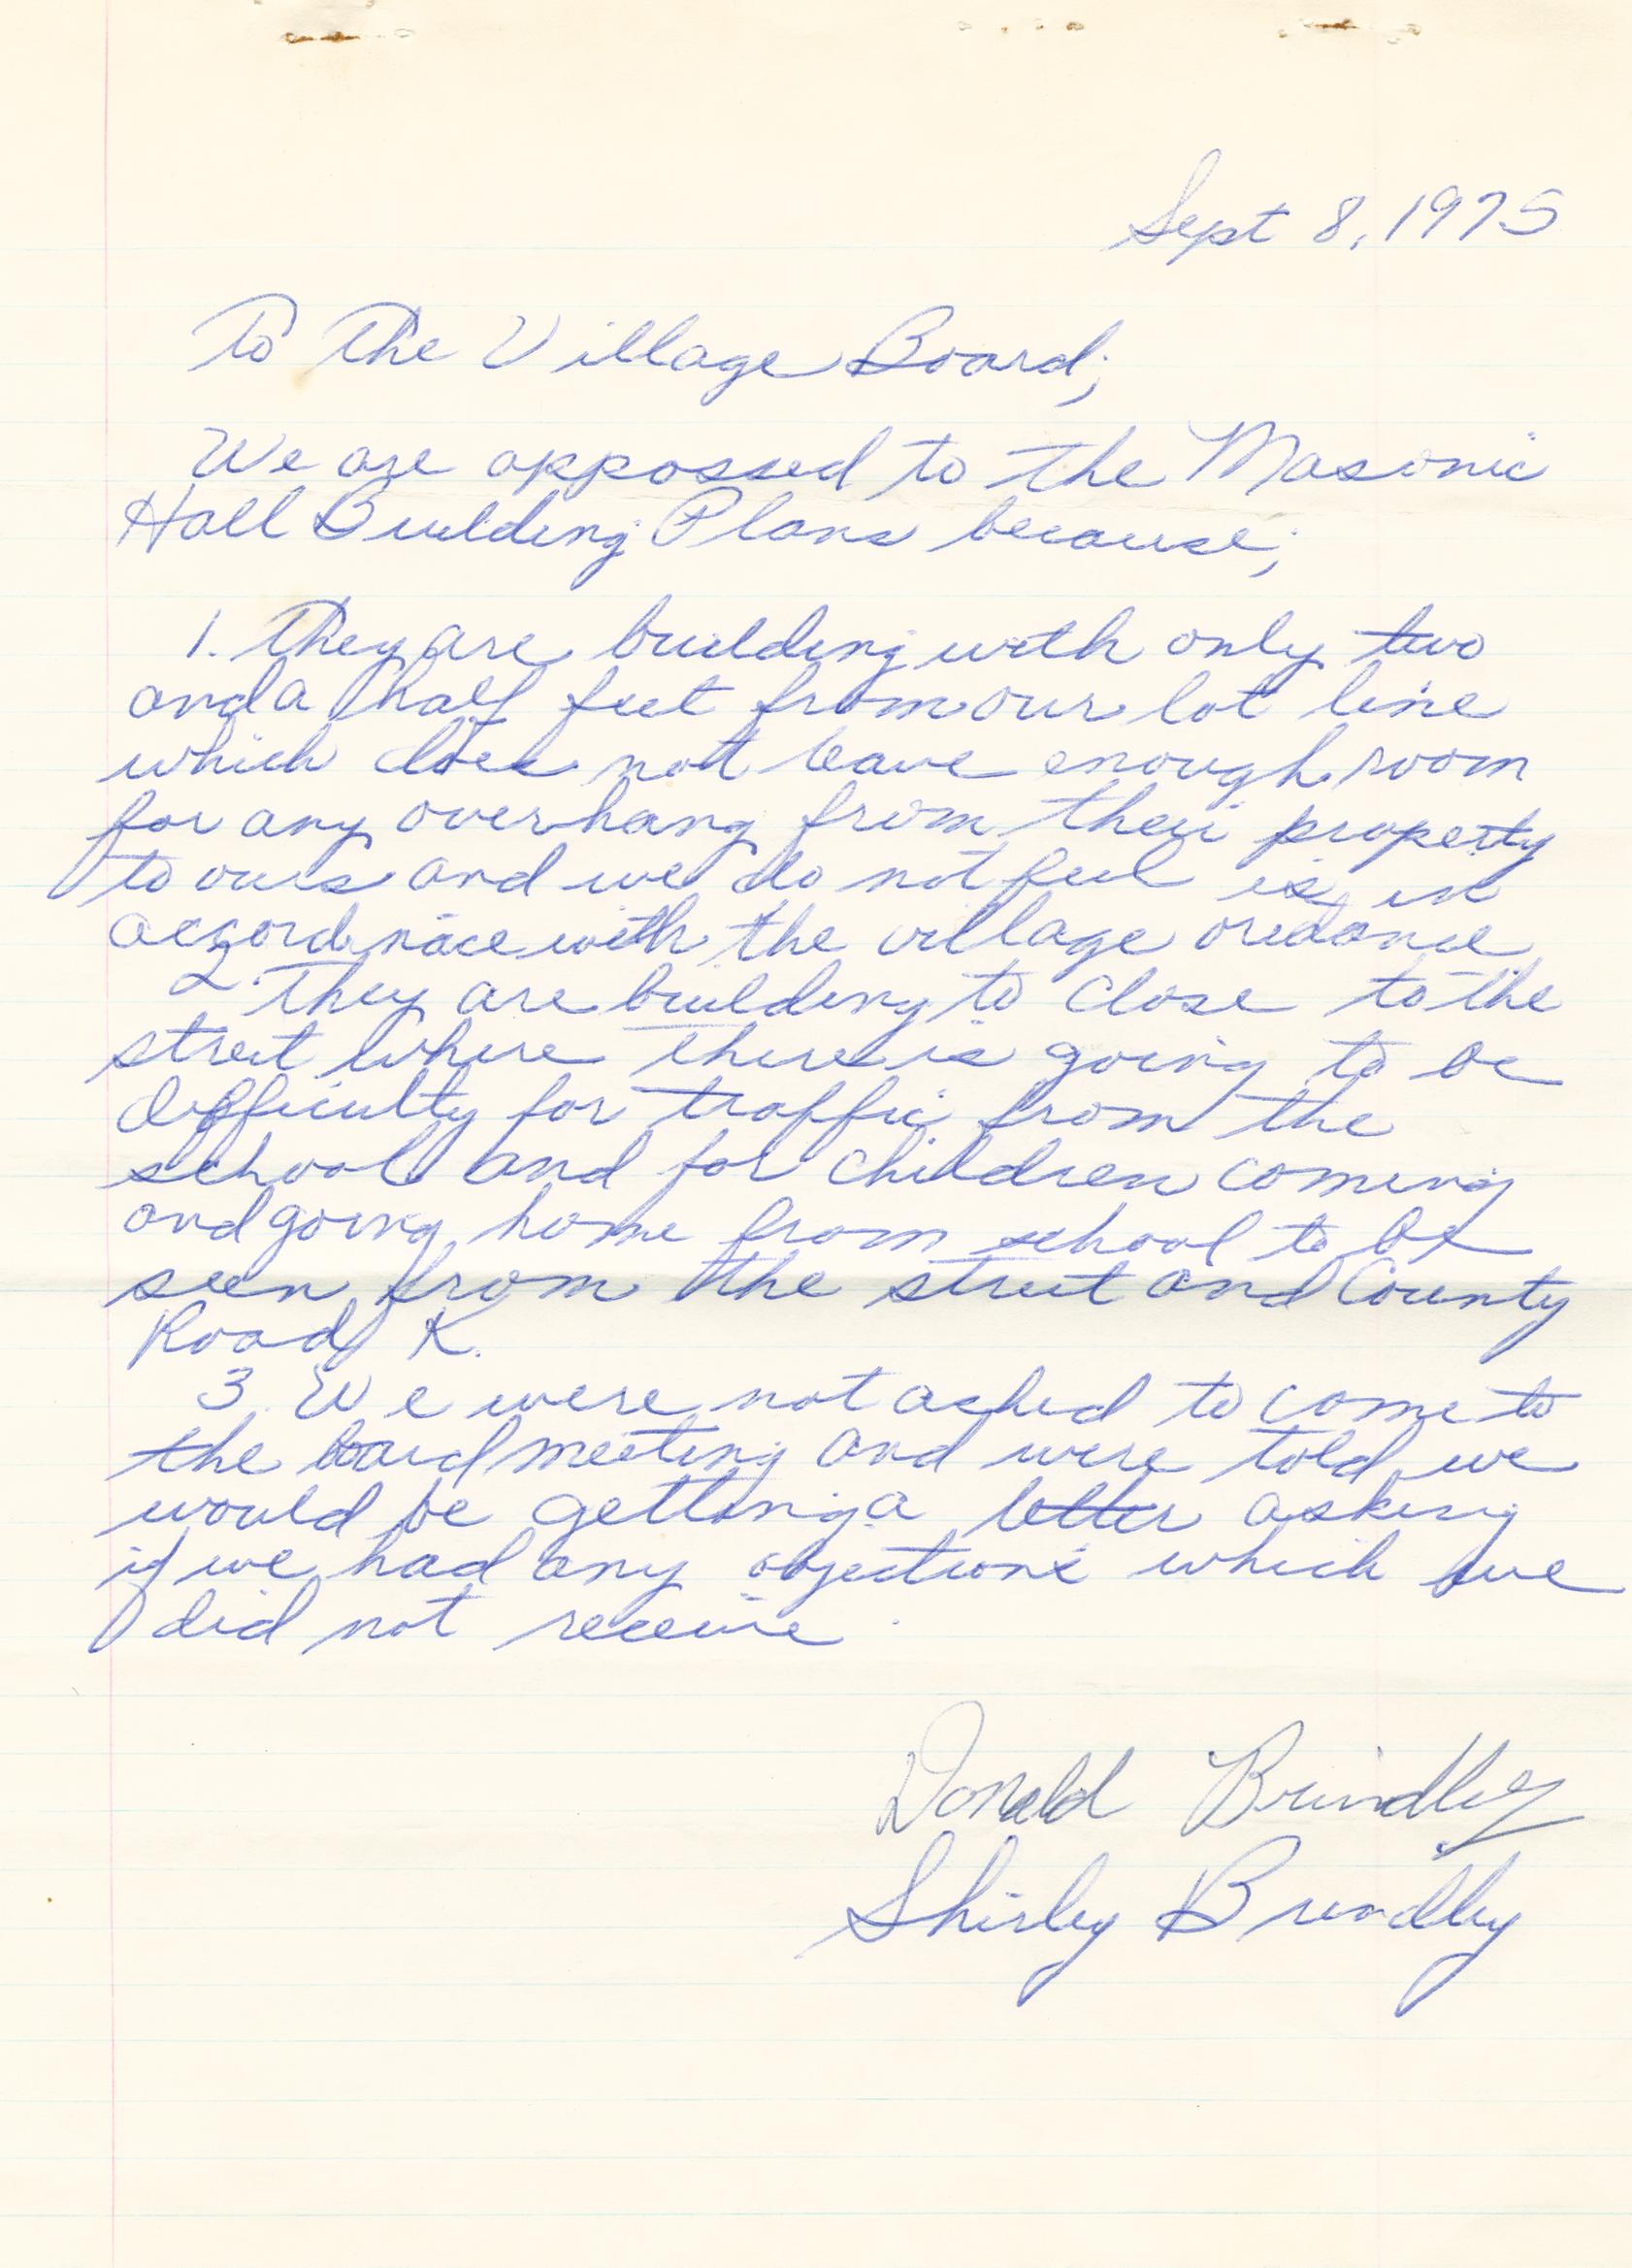 Sept 8, 1975
To The Village Board;
We are oppossed to the Masonic
Hall Building Plans because;
1. They are building with only two
and a half feet from our lot line
which does not leave enough room
for any overhang from their property
to ours and we do not feel is in
accordnace with the village
2. They are building to close to the
street where there is going to be
difficulty for traffic from the
school and for children coming
and going home from school to be
seen from the street and County
Road K.
3. We were not asked to come to
the board meeting and were told we
would be getting a letter asking
if we had any objections which we
did not receive.
Donald Brindley
Shirley Brindley